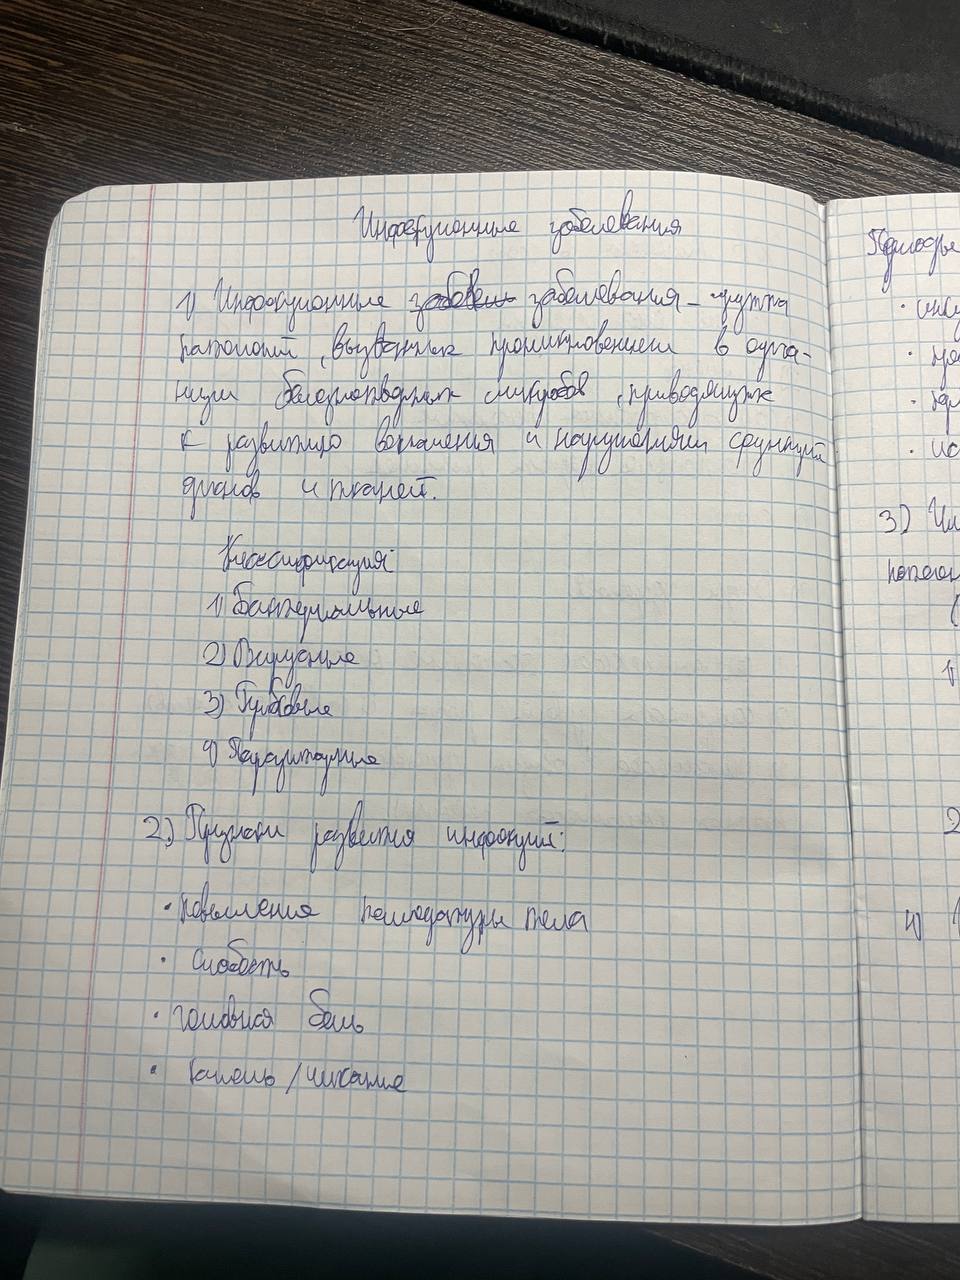 Инфекционные заболевания
1) Инфекционные заболевания – группа
патологий, вызванных проникновением в орга-
низм болезнетворных микробов, приводящих
к развитию воспаления и нарушениям функций
органов и тканей.
Классификация:
1) Бактериальные
2) Вирусные
3) Грибковые
4) Паразитарные
2) Признаки развития инфекций:
• повышение температуры тела
• слабость
• головная боль
• кашель / чихание
Периоды
3)
2
4)